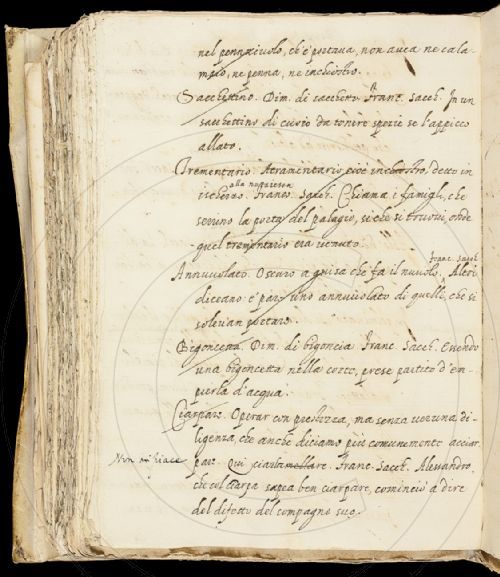 nel pennaiuolo, ch'e' portava, non avea ne cala-
maio, ne penna, ne inchiostro.
Sacchettino. Dim. di sacchetto. Franc. Sacch. In un
sacchettino di cuoio da tenere spezie se l'appiccò
allato.
Trementario. Atramentario, cioè inchiostro, detto in
ischerzo. alla nuppiesen Franc. Sacch. Chiama i famigli, che
serrino la porta del palagio, sì che si truovi, onde
quel trementario era venuto.
Annuvolato. Oscuro a guisa che fa il nuvolo. Franc. Sacch. Altri
diceano e' pare uno annuvolato di quelli, che si
solevan portare.
Bigoncetta. Dim. di bigoncia Franc. Sacch. Essendo
una bigoncetta nella corte, prese partito d'em-
pierla d'acqua.
Ciarpare. Operar con prestezza, ma senza veruna di-
ligenza, che anche diciamo più comunemente acciar
pare. Qui Franc. Sacch. Alessandro,
che col ciarpa sapea ben ciarpare, cominciò a dire
del difetto del compagno suo.
Non mi piace